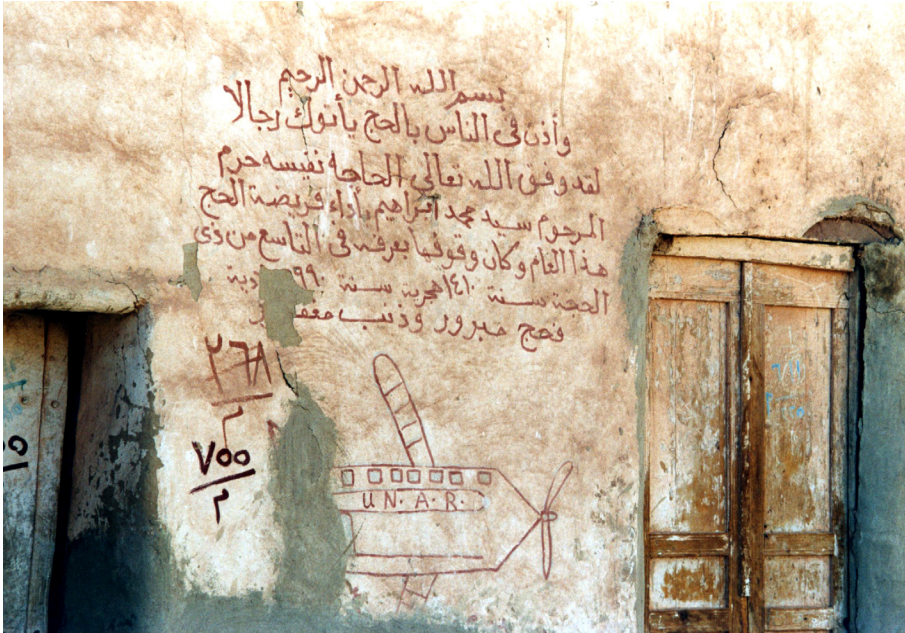 بسم الله الرحمن الرحيم
وأذن فى الناس بالحج يأتوك رجالا
لقد وفق الله تعالى الحاجه نفيسه حرم
المرحوم سيد محمد ابراهيم بأداء فريضة الحج
هذا العام وكان وقوفها بعرفه فى التاسع من ذى
الحجة سنة ١٤١٠ هجرية سنة ٩٩٠ دية
فحج مبرور وذنب مغف
٢٦٨
٢
٧٥٥
٢
U.N.A.R.